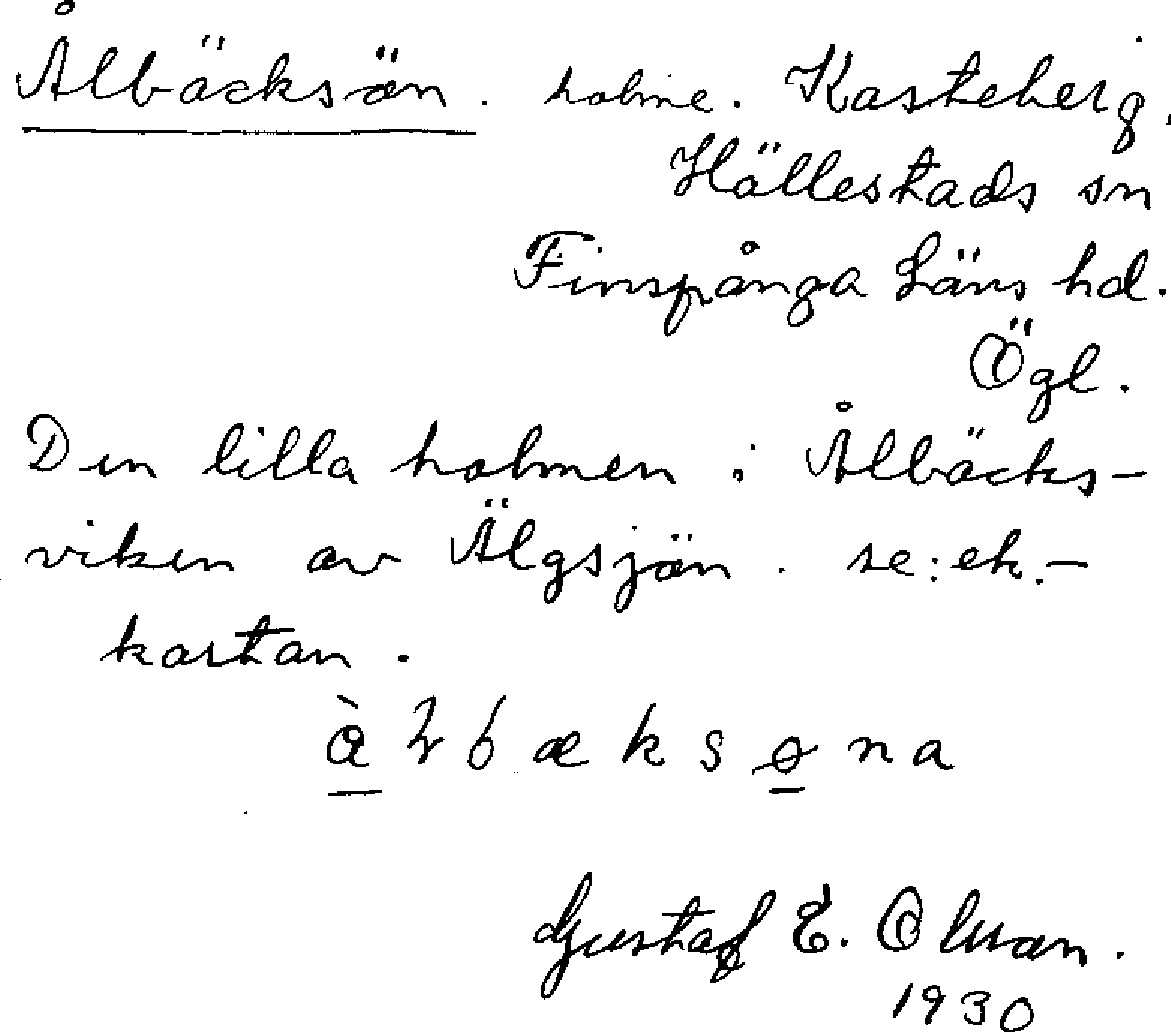 Ålbäcksön. holme. Kasteberg.
Hällestads sn
Finspånga Läns hd.
Ögl.
Den lilla holmen i Ålbäcks-
viken av Älgsjön. se: ek.-
kartan.
Gustaf E. Olsson.
1930